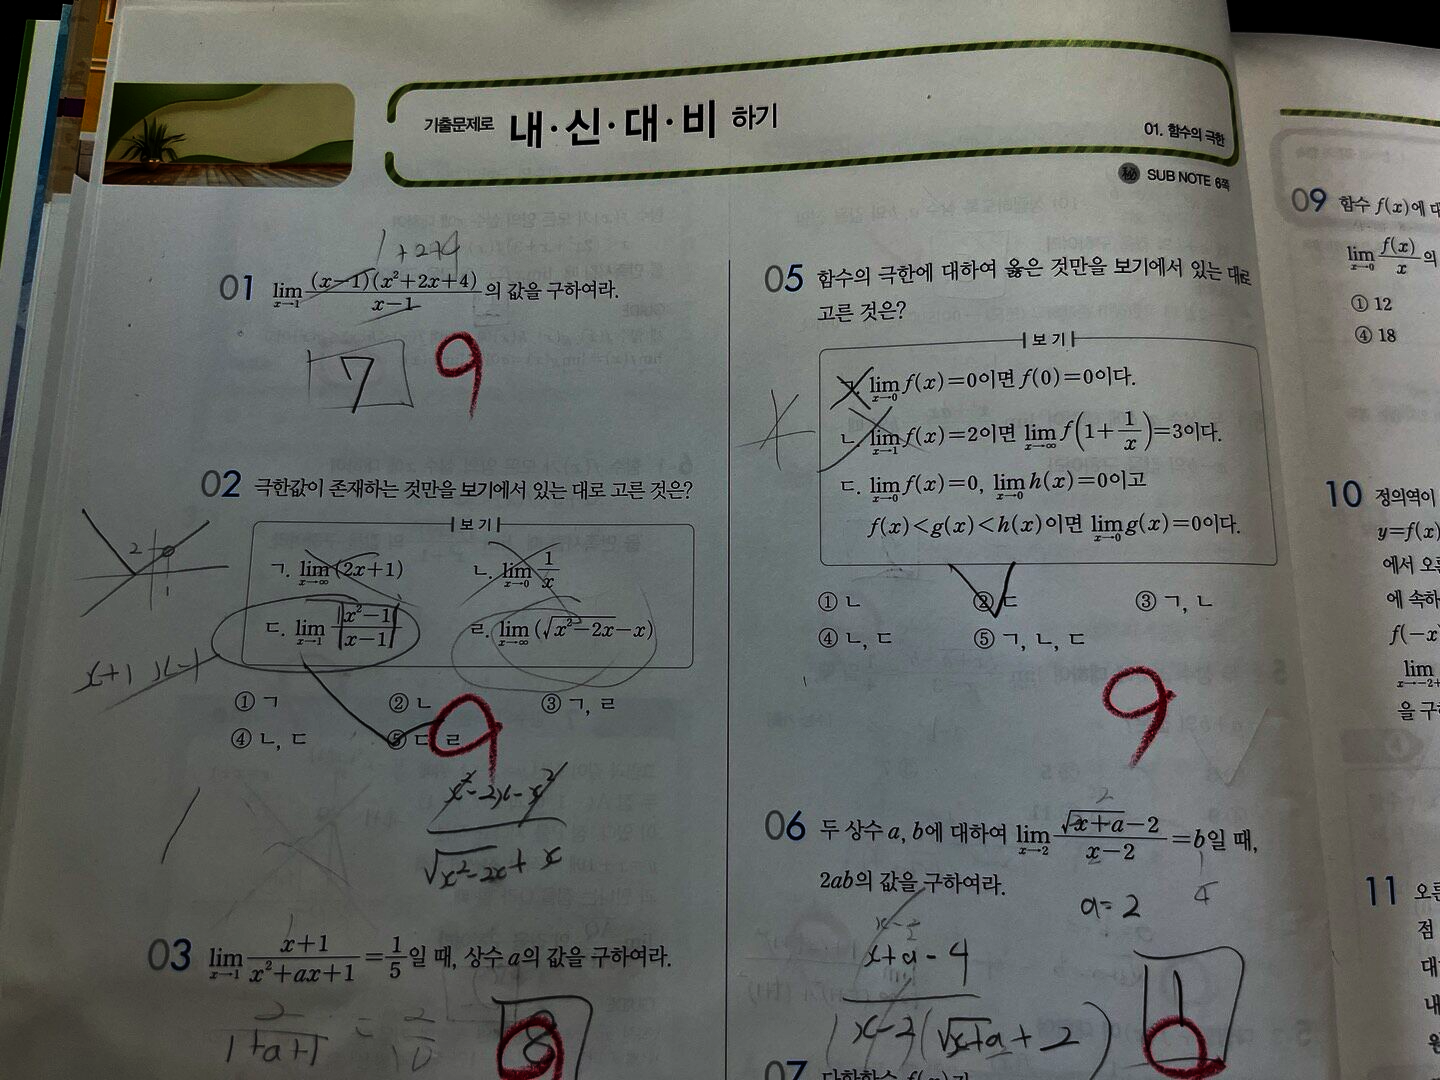 기출문제로 내·신·대·비 하기
01. 함수의 극한
SUB NOTE 6쪽
1+2+4
01 lim x→1 (x-1)(x²+2x+4)/(x-1) 의 값을 구하여라.
7
02 극한값이 존재하는 것만을 보기에서 있는 대로 고른 것은?
보기
ㄱ. lim x→∞ (2x+1) ㄴ. lim x→0 1/x
ㄷ. lim x→1 |x²-1|/|x-1| ㄹ. lim x→∞ (√(x²-2x)-x)
2
1
x+1 x-1
① ㄱ ② ㄴ ③ ㄱ, ㄹ
④ ㄴ, ㄷ ⑤ ㄷ, ㄹ
x²-2x-x²
√(x²-2x)+x
03 lim x→1 (x+1)/(x²+ax+1) = 1/5일 때, 상수 a의 값을 구하여라.
2/(1+a+1) = 2/10
8
05 함수의 극한에 대하여 옳은 것만을 보기에서 있는 대로
고른 것은?
보기
ㄱ. lim x→0 f(x)=0이면 f(0)=0이다.
ㄴ. lim x→1 f(x)=2이면 lim x→∞ f(1+1/x)=3이다.
ㄷ. lim x→0 f(x)=0, lim x→0 h(x)=0이고
f(x)<g(x)<h(x)이면 lim x→0 g(x)=0이다.
① ㄴ ② ㄷ ③ ㄱ, ㄴ
④ ㄴ, ㄷ ⑤ ㄱ, ㄴ, ㄷ
06 두 상수 a, b에 대하여 lim x→2 (√(x+a)-2)/(x-2) = b일 때,
2ab의 값을 구하여라.
a=2
1/4
x+a-4
(x-2)(√(x+a)+2)
1
07
09 함수 f(x)에 대
lim x→0 f(x)/x 의
① 12
④ 18
10 정의역이
y=f(x)
에서 오른
에 속하
f(-x)
lim x→-2+
을 구하
11 오른
점
대
내